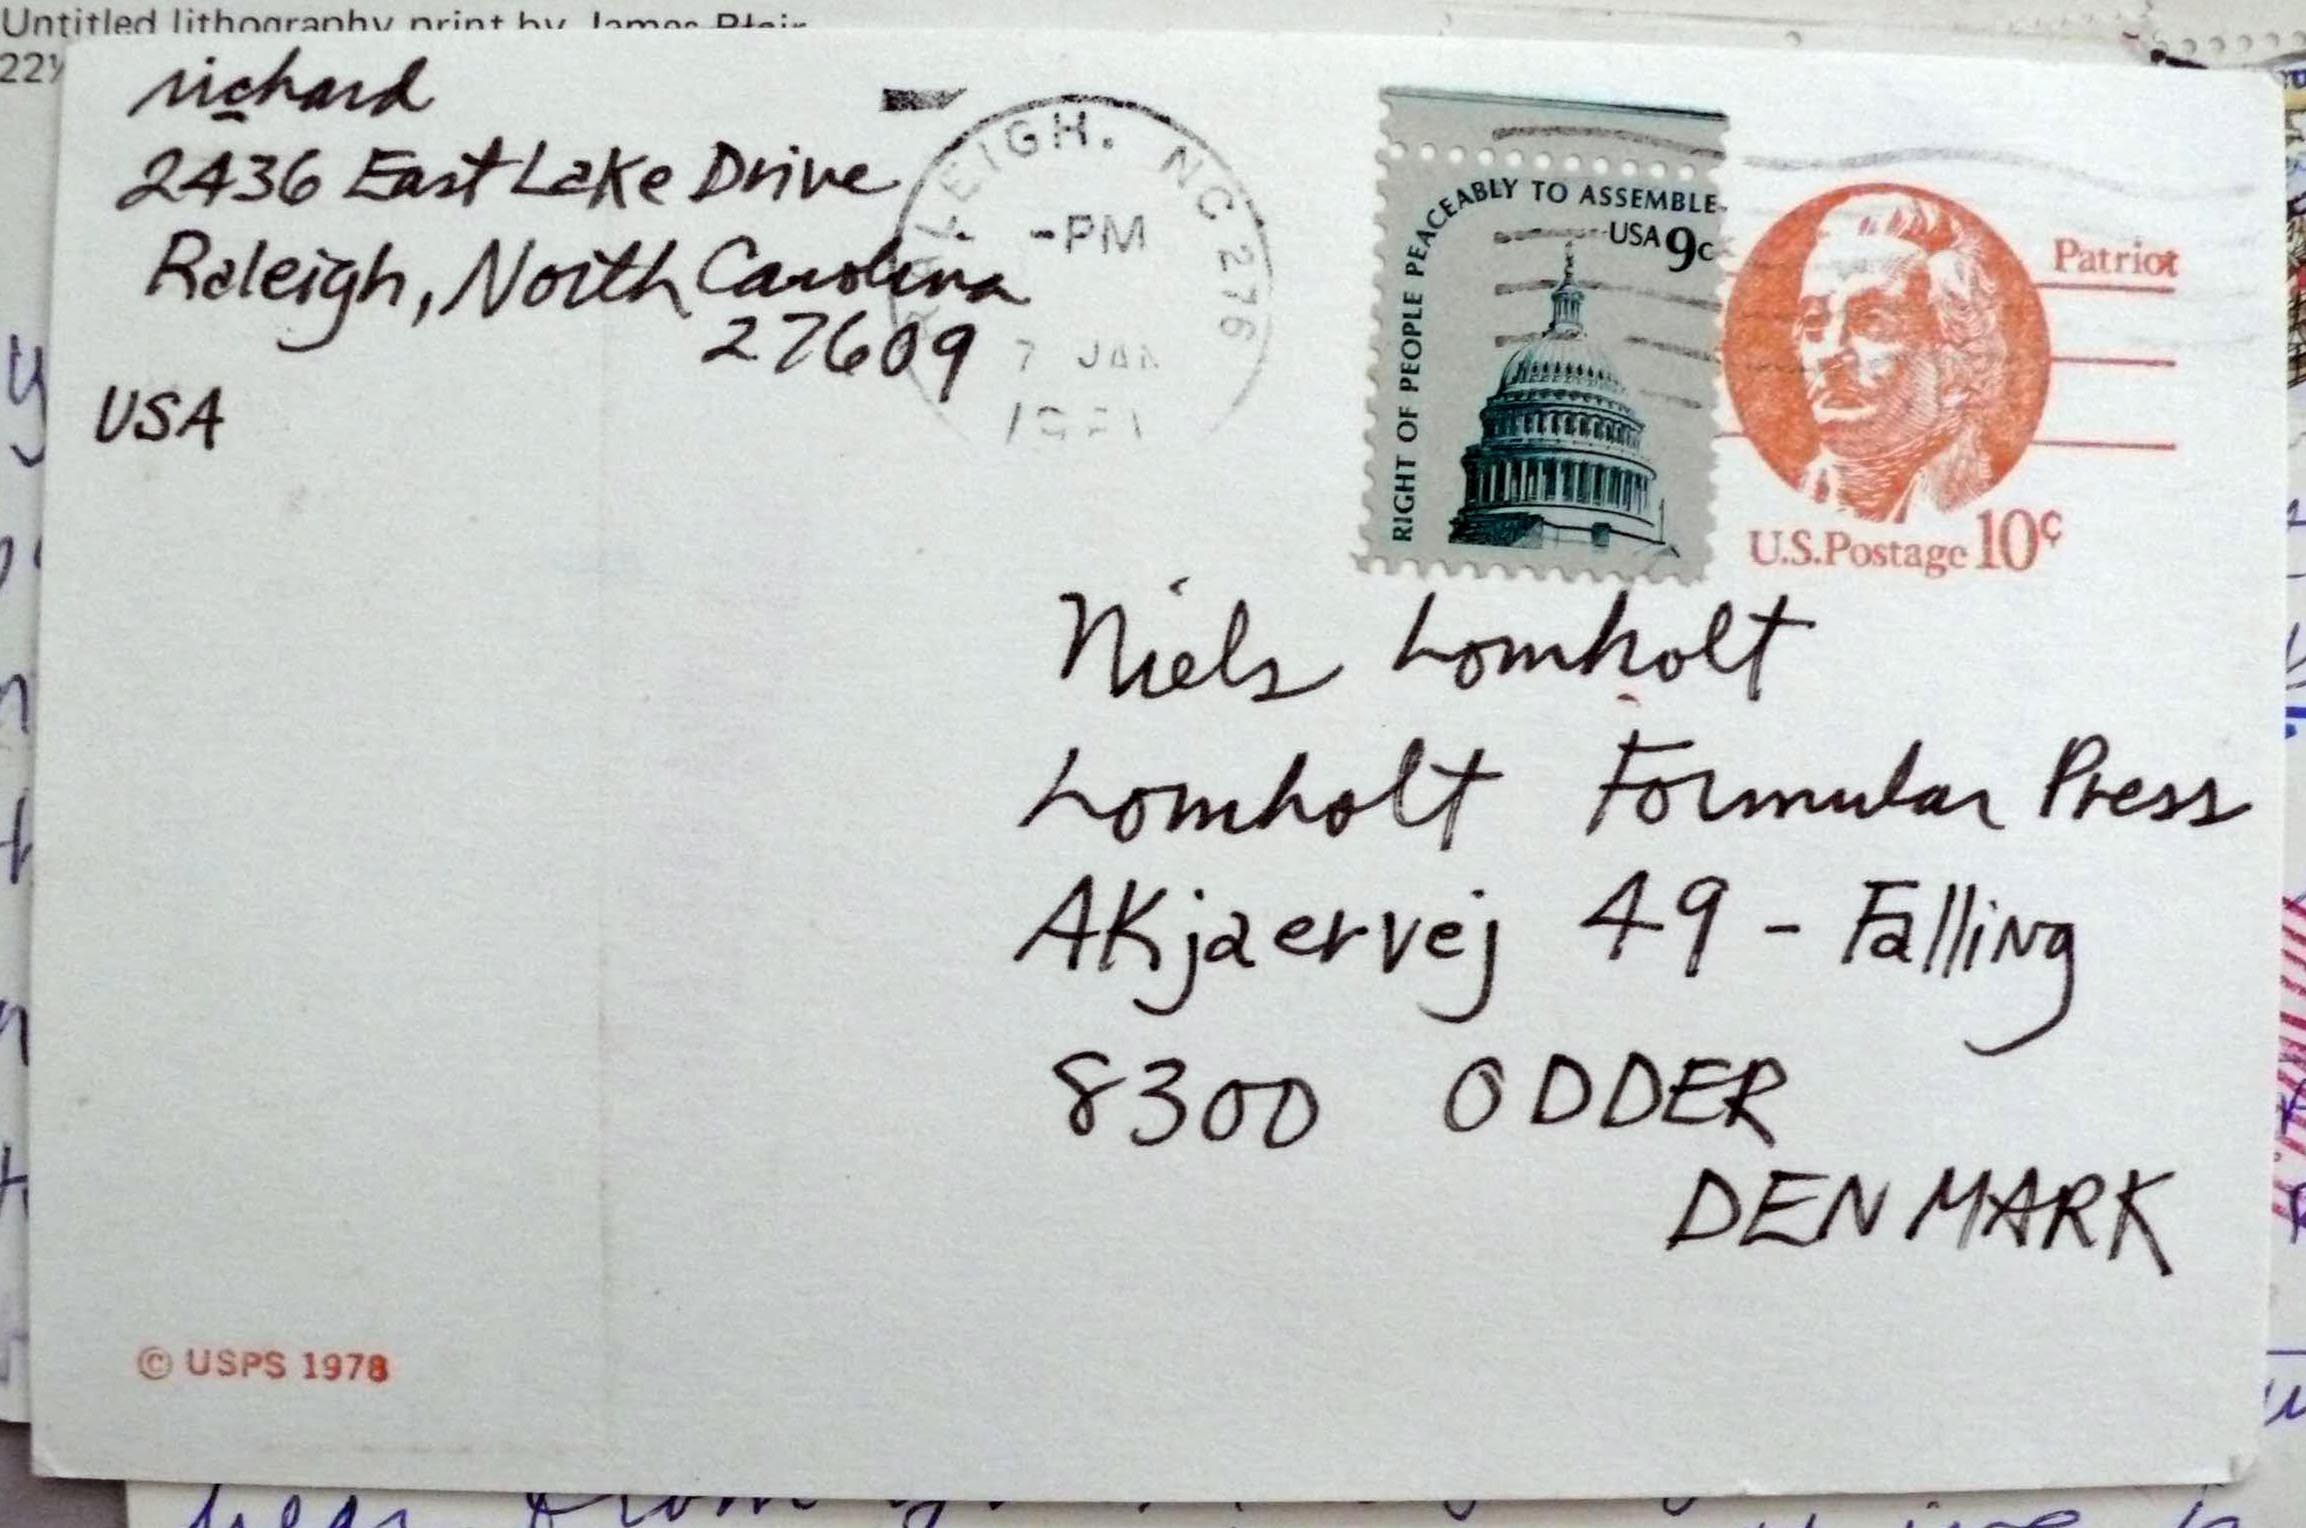 Untitled lithography print by James Blair
richard
2436 East Lake Drive
Raleigh, North Carolina
27609
USA
RALEIGH, NC 276
-PM
7 JAN
1981
RIGHT OF PEOPLE PEACEABLY TO ASSEMBLE
USA 9c
Patriot
U.S. Postage 10¢
Niels Lomholt
Lomholt Formular Press
AKjaervej 49 - Falling
8300 ODDER
DENMARK
© USPS 1978